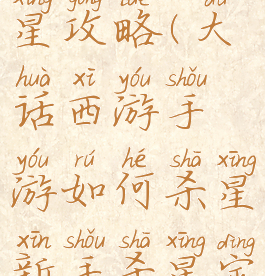 xīng gōng lüè dà
星攻略(大
huà xī yóu shǒu
话西游手
yóu rú hé shā xīng
游如何杀星
xīn shǒu shā xīng dìng
新手杀星定